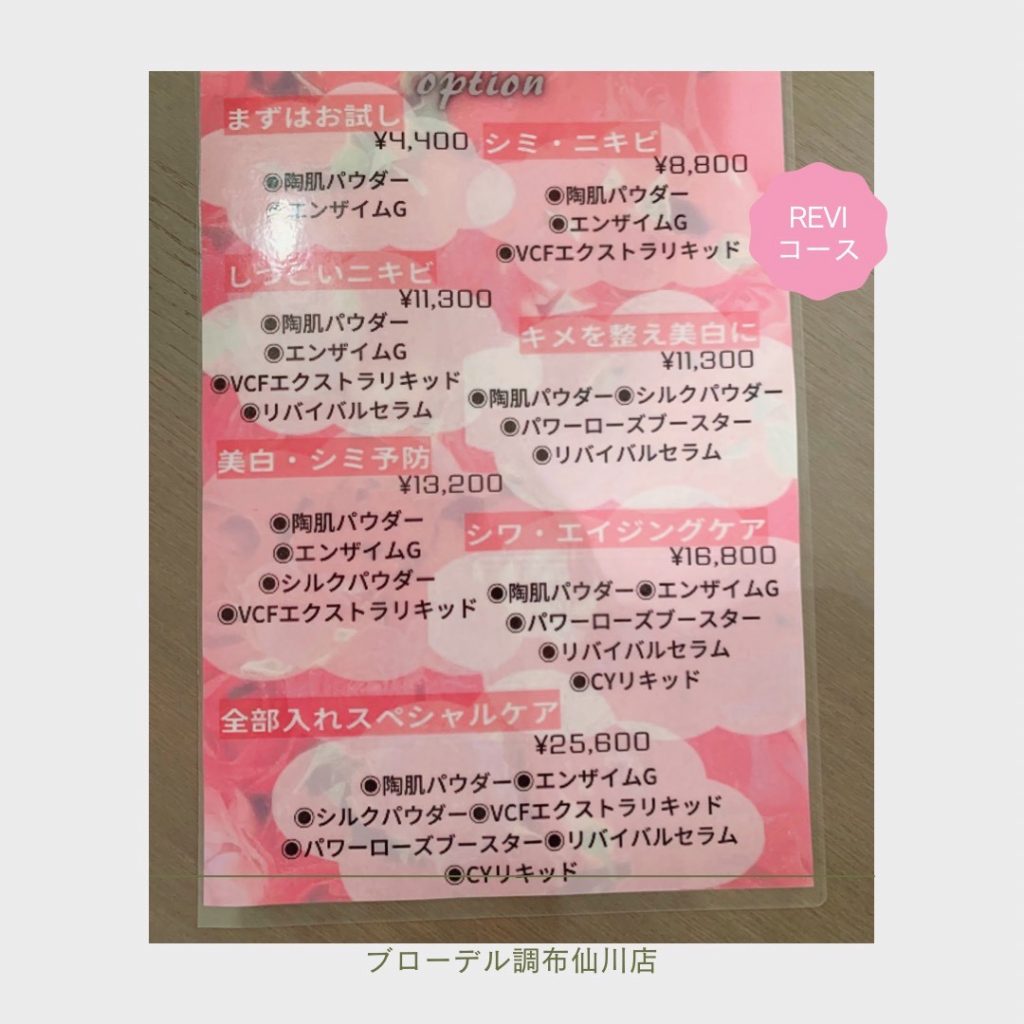 option
まずはお試し
¥4,400
◉陶肌パウダー
◉エンザイムG
シミ・ニキビ
¥8,800
◉陶肌パウダー
◉エンザイムG
◉VCFエクストラリキッド
REVI
コース
しつこいニキビ
¥11,300
◉陶肌パウダー
◉エンザイムG
◉VCFエクストラリキッド
◉リバイバルセラム
キメを整え美白に
¥11,300
◉陶肌パウダー◉シルクパウダー
◉パワーローズブースター
◉リバイバルセラム
美白・シミ予防
¥13,200
◉陶肌パウダー
◉エンザイムG
◉シルクパウダー
◉VCFエクストラリキッド
シワ・エイジングケア
¥16,800
◉陶肌パウダー◉エンザイムG
◉パワーローズブースター
◉リバイバルセラム
◉CYリキッド
全部入れスペシャルケア
¥25,600
◉陶肌パウダー◉エンザイムG
◉シルクパウダー◉VCFエクストラリキッド
◉パワーローズブースター◉リバイバルセラム
◉CYリキッド
ブローデル調布仙川店